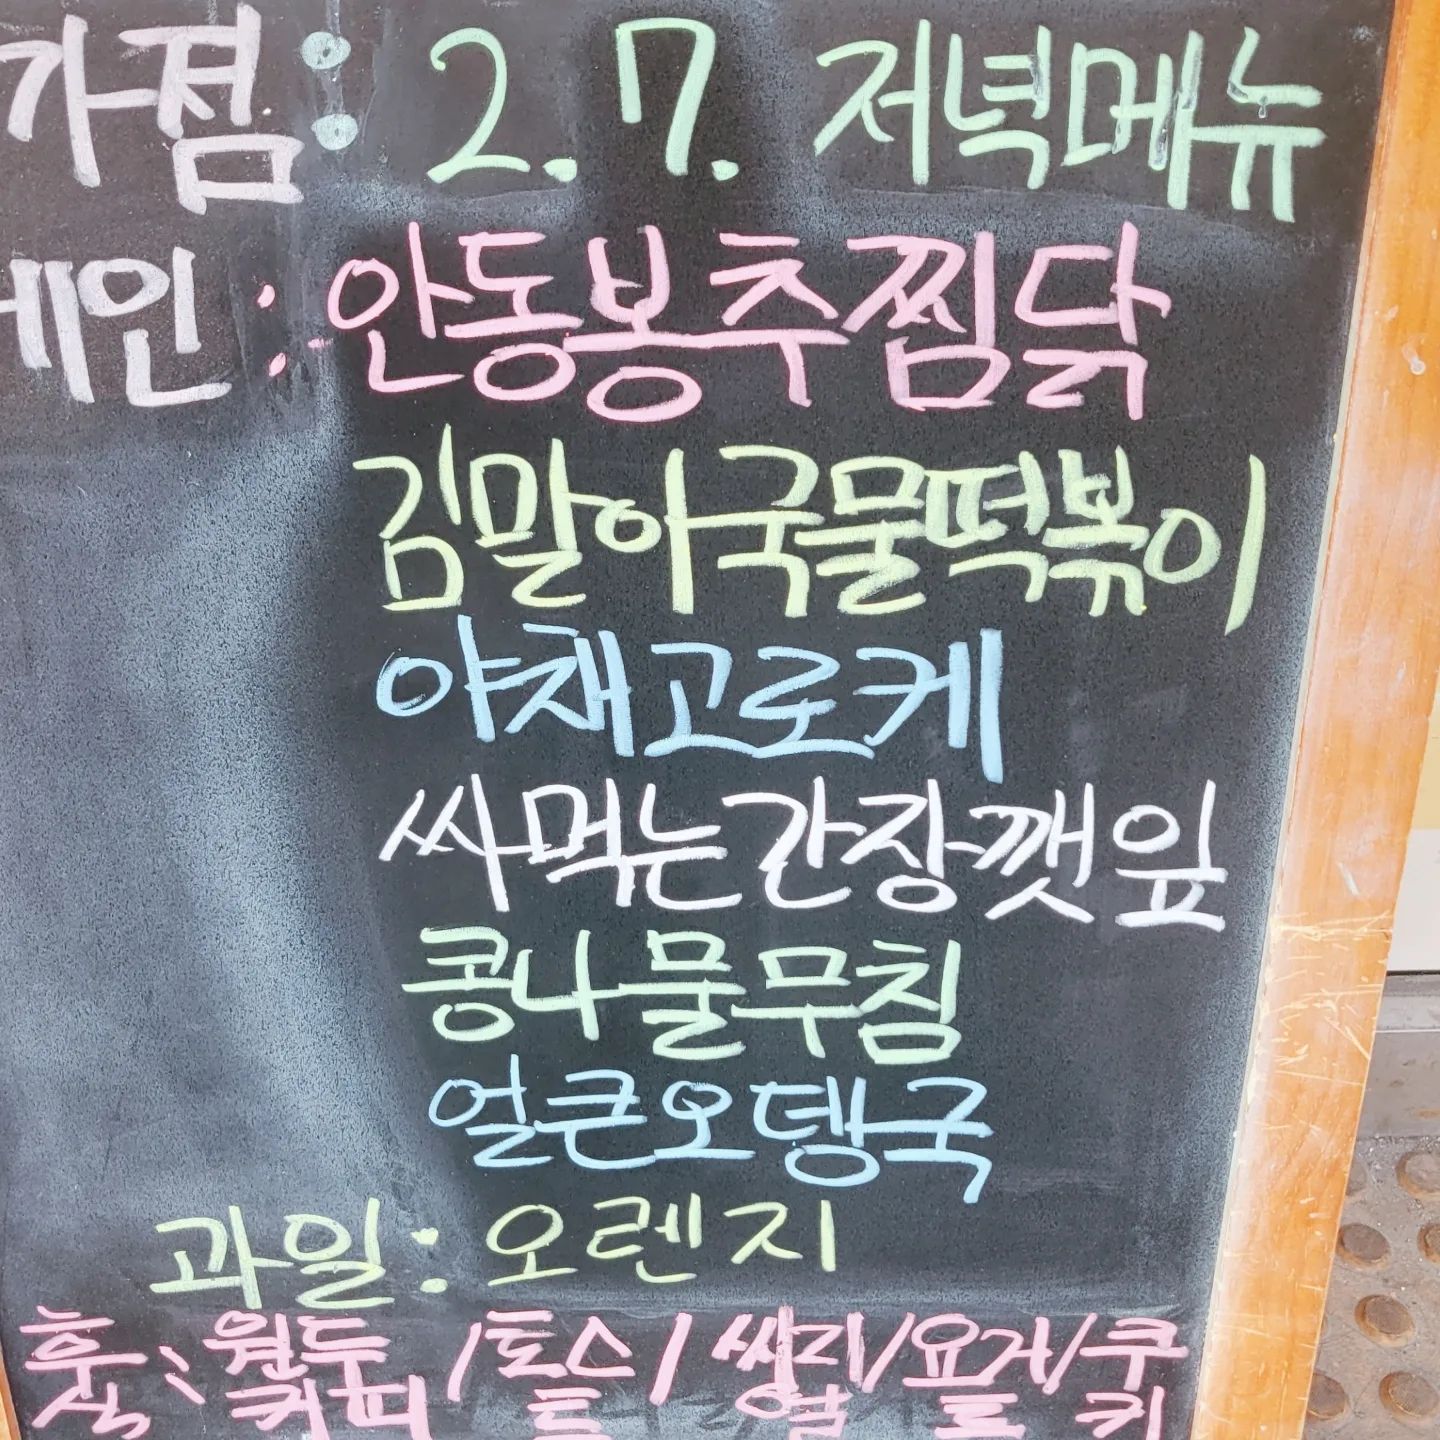 가점: 2.7. 저녁메뉴
메인: 안동봉추찜닭
김말이국물떡볶이
야채고로케
싸먹는간장깻잎
콩나물무침
얼큰오뎅국
과일: 오렌지
후식: 원두커피/토스트/씨리얼/요거트/쿠키